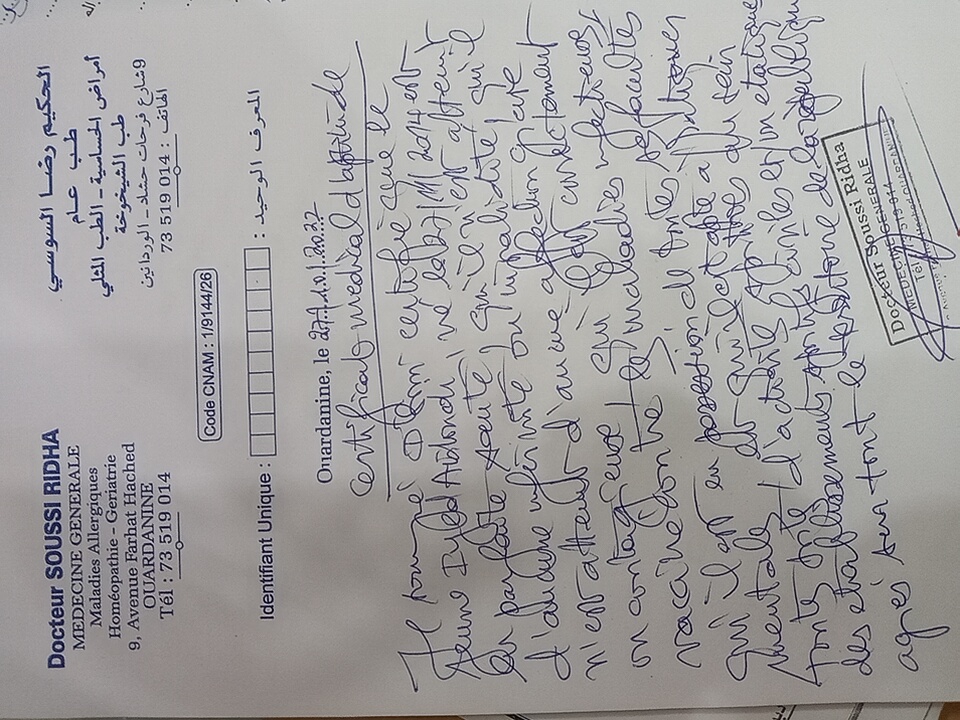 Docteur SOUSSI RIDHA
MEDECINE GENERALE
Maladies Allergiques
Homéopathie - Gériatrie
9, Avenue Farhat Hached
OUARDANINE
Tél : 73 519 014
الحكيم رضا السوسي
طب عام
أمراض الحساسية - الطب المثلي
طب الشيخوخة
9 شارع فرحات حشاد - الوردانين
الهاتف : 014 519 73
Code CNAM : 1/9144/26
Identifiant Unique : المعرف الوحيد :
Ouardanine, le 27.1.0.1.202
Certificat médical d'aptitude
Je soussigné Dr certifie que le
jeune né le 27/11/2014 est
en parfaite santé, qu'il n'est atteint
d'aucune infirmité ou invalidité, qu'il
n'est atteint d'aucune affection grave
ou contagieuse, qu'il est correctement
vacciné contre les maladies infectieuses,
qu'il est en possession de toutes ses facultés
mentales et qu'il est apte à pratiquer
toutes sortes d'activités au sein
des établissements civiles et/ou étatiques
sur tout le territoire de la république
Docteur Soussi Ridha
MEDECINE GENERALE